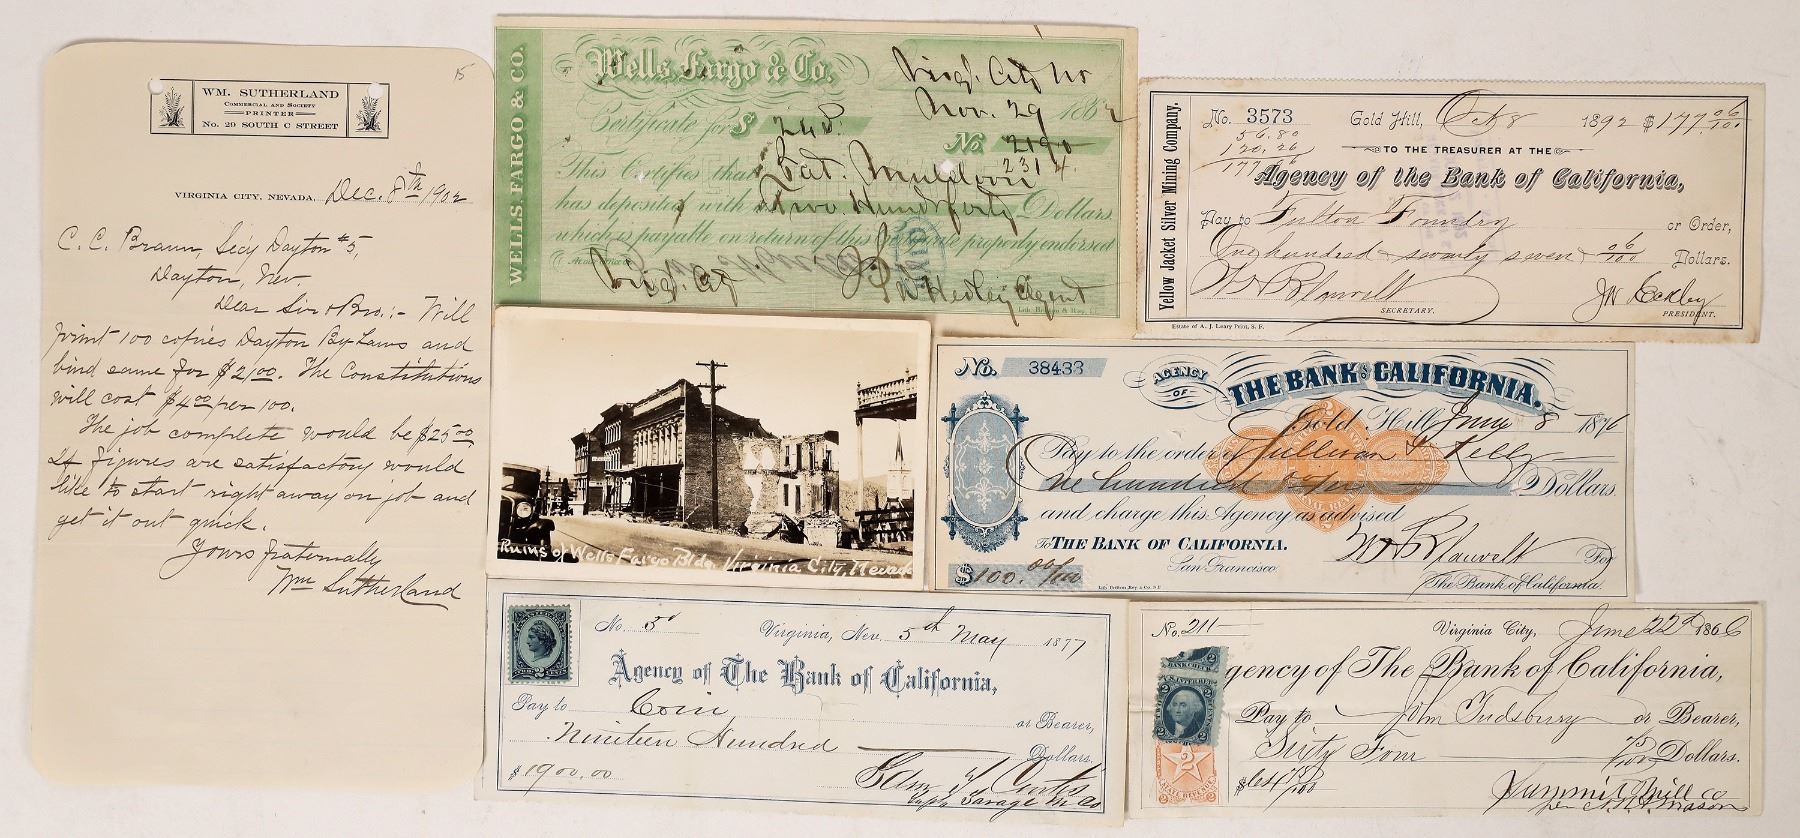 15
WM. SUTHERLAND
COMMERCIAL AND SOCIETY
PRINTER
No. 29 SOUTH C STREET
VIRGINIA CITY, NEVADA, Dec. 8th 1902
C. C. Braun, Secy Dayton #5,
Dayton, Nev.
Dear Sir & Bro.:- Will
print 100 copies Dayton By Laws and
bind same for $21.00. The Constitutions
will cost $4.00 per 100.
The job complete would be $25.00
If figures are satisfactory would
like to start right away on job and
get it out quick.
Yours fraternally
Wm Sutherland
WELLS, FARGO & CO.
Wells, Fargo & Co.
Virg. City
Nov. 29 186
Certificate for $ 240.
No. 2190
2314
This Certifies that Pat. Muldoon
has deposited with us Two Hund forty Dollars
which is payable on return of this properly endorsed
At our office
Virg. City
Agent
PAID
Yellow Jacket Silver Mining Company.
No. 3573 Gold Hill, Oct 8 1892 $177 06/100
56.80
120.26
177.06
TO THE TREASURER AT THE
Agency of the Bank of California,
Pay to Fulton Foundry or Order,
One hundred & seventy seven 06/100 Dollars.
W H Blauvelt SECRETARY.
J W Eckley PRESIDENT.
Estate of A. J. Leary Print, S. F.
Ruins of Wells Fargo Bldg. Virginia City, Nevada
No. 38433
AGENCY OF THE BANK OF CALIFORNIA.
Gold Hill, June 8 1876
Pay to the order of Sullivan & Kelly
One hundred 00/100 Dollars.
and charge this Agency as advised
To THE BANK OF CALIFORNIA.
San Francisco.
W H Blauvelt For
The Bank of California.
$100. 00/100
No. 5 Virginia, Nev. 5th May 1877
Agency of The Bank of California,
Pay to Coin or Bearer,
Nineteen Hundred Dollars.
$1900.00
Supt Savage M Co
No. 211 Virginia City, June 22d 1866
Agency of The Bank of California,
BANK CHECK
2
Pay to John Tudsbury or Bearer,
Sixty Four 75/100 Dollars.
$64 75/100
Summit Mill Co
per Mason